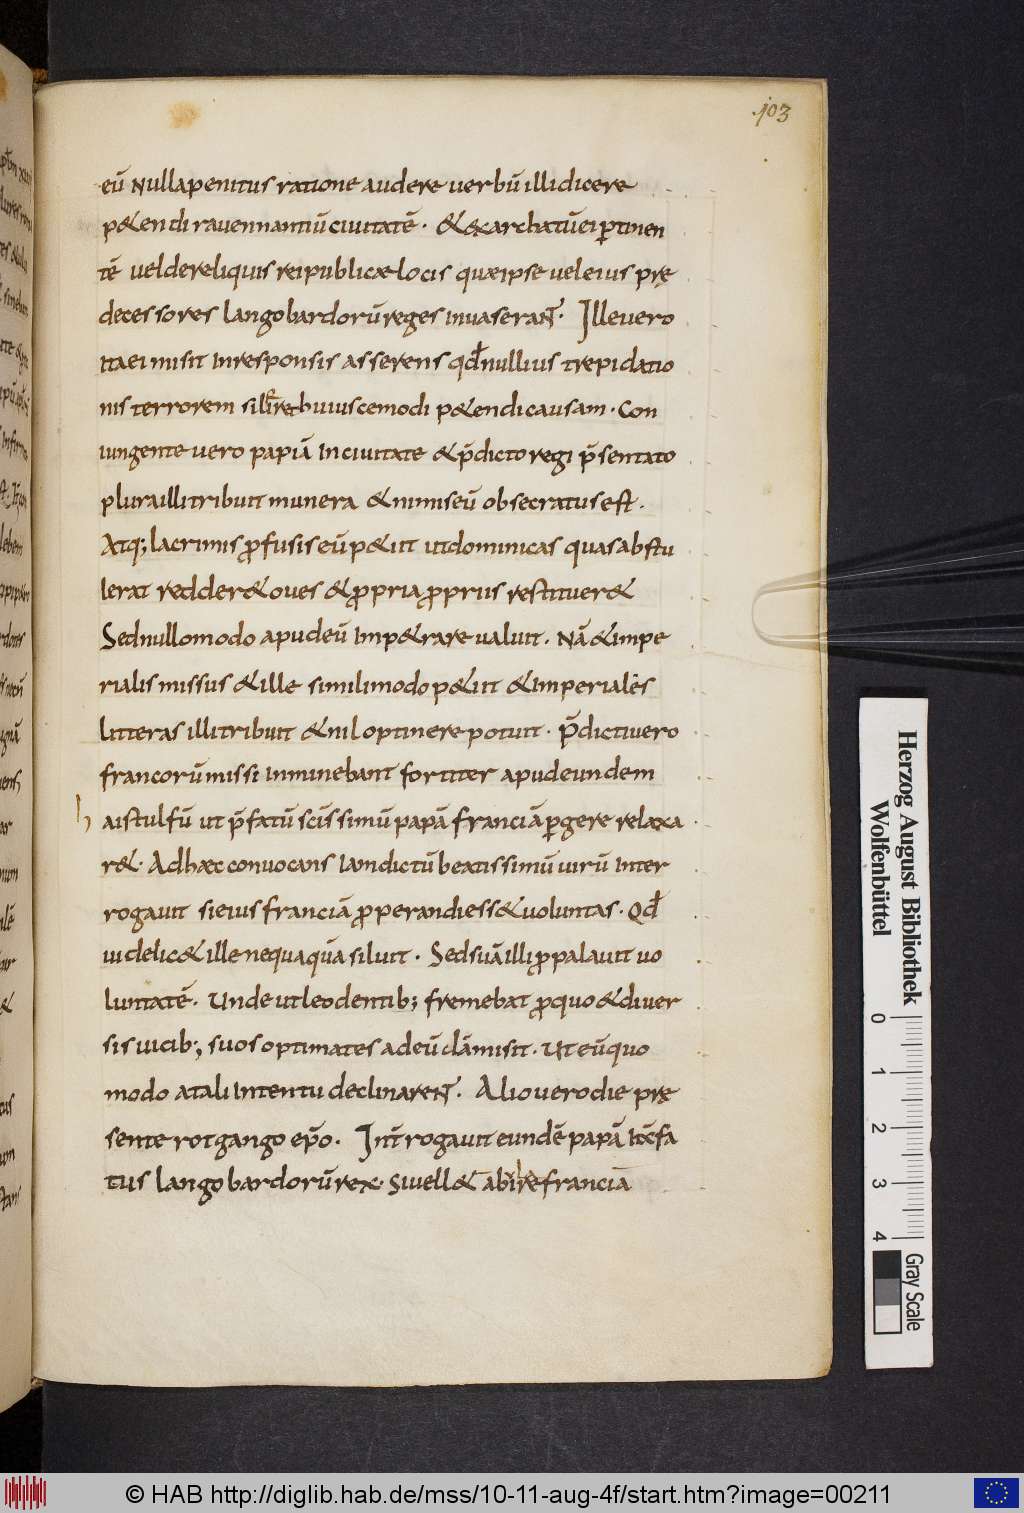 103
eū nulla penitus ratione audere uerbū illi dicere
p&endi rauennantiū ciuitatē · & exarchatū ei ꝑtinen
tē uel de reliquis reipublicæ locis quæ ipse uel eius prę
decessores langobardorū reges inuaserant · Ille uero
ita ei misit in responsis asserens qđ nullius trepidatio
nis terrorem huiuscemodi p&endi causam · Con
iungente uero papiā in ciuitate & p̄dicto regi p̄sentato
plura illi tribuit munera & nimis eū obsecratus est .
Atq; lacrimis ꝓfusis eū p&iit ut dominicas quas abstu
lerat redder& oues & ꝓpria ꝓpriis restituer&
Sed nullo modo apud eū imp&rare ualuit . Nā & impe
rialis missus & ille simili modo p&iit & imperiales
litteras illi tribuit & nil optinere potuit . p̄dicti uero
francorū missi inminebant fortiter apud eundem
h
aistulfū ut p̄fatū scīssimū papā franciā ꝑgere relaxa
r& · Ad hæc conuocans iam dictū beatissimū uirū inter
rogauit si eius franciā ꝓperandi ess& uoluntas · Qđ
uidelic& ille nequaquā siluit . Sed suā illi ꝓpalauit uo
luntatē . Unde ut leo dentib; fremebat ꝓ quo & diuer
sis uicib; suos optimates ad eū clā misit . Ut eū quo
modo a tali intentu declinarent . Alio uero die prę
sente rotgango ep̄o . Int̄rogauit eundē papā
tus langobardorū rex · Si uell& abire franciā
Herzog August Bibliothek
Wolfenbüttel
0 1 2 3 4
Gray Scale
© HAB http://diglib.hab.de/mss/10-11-aug-4f/start.htm?image=00211